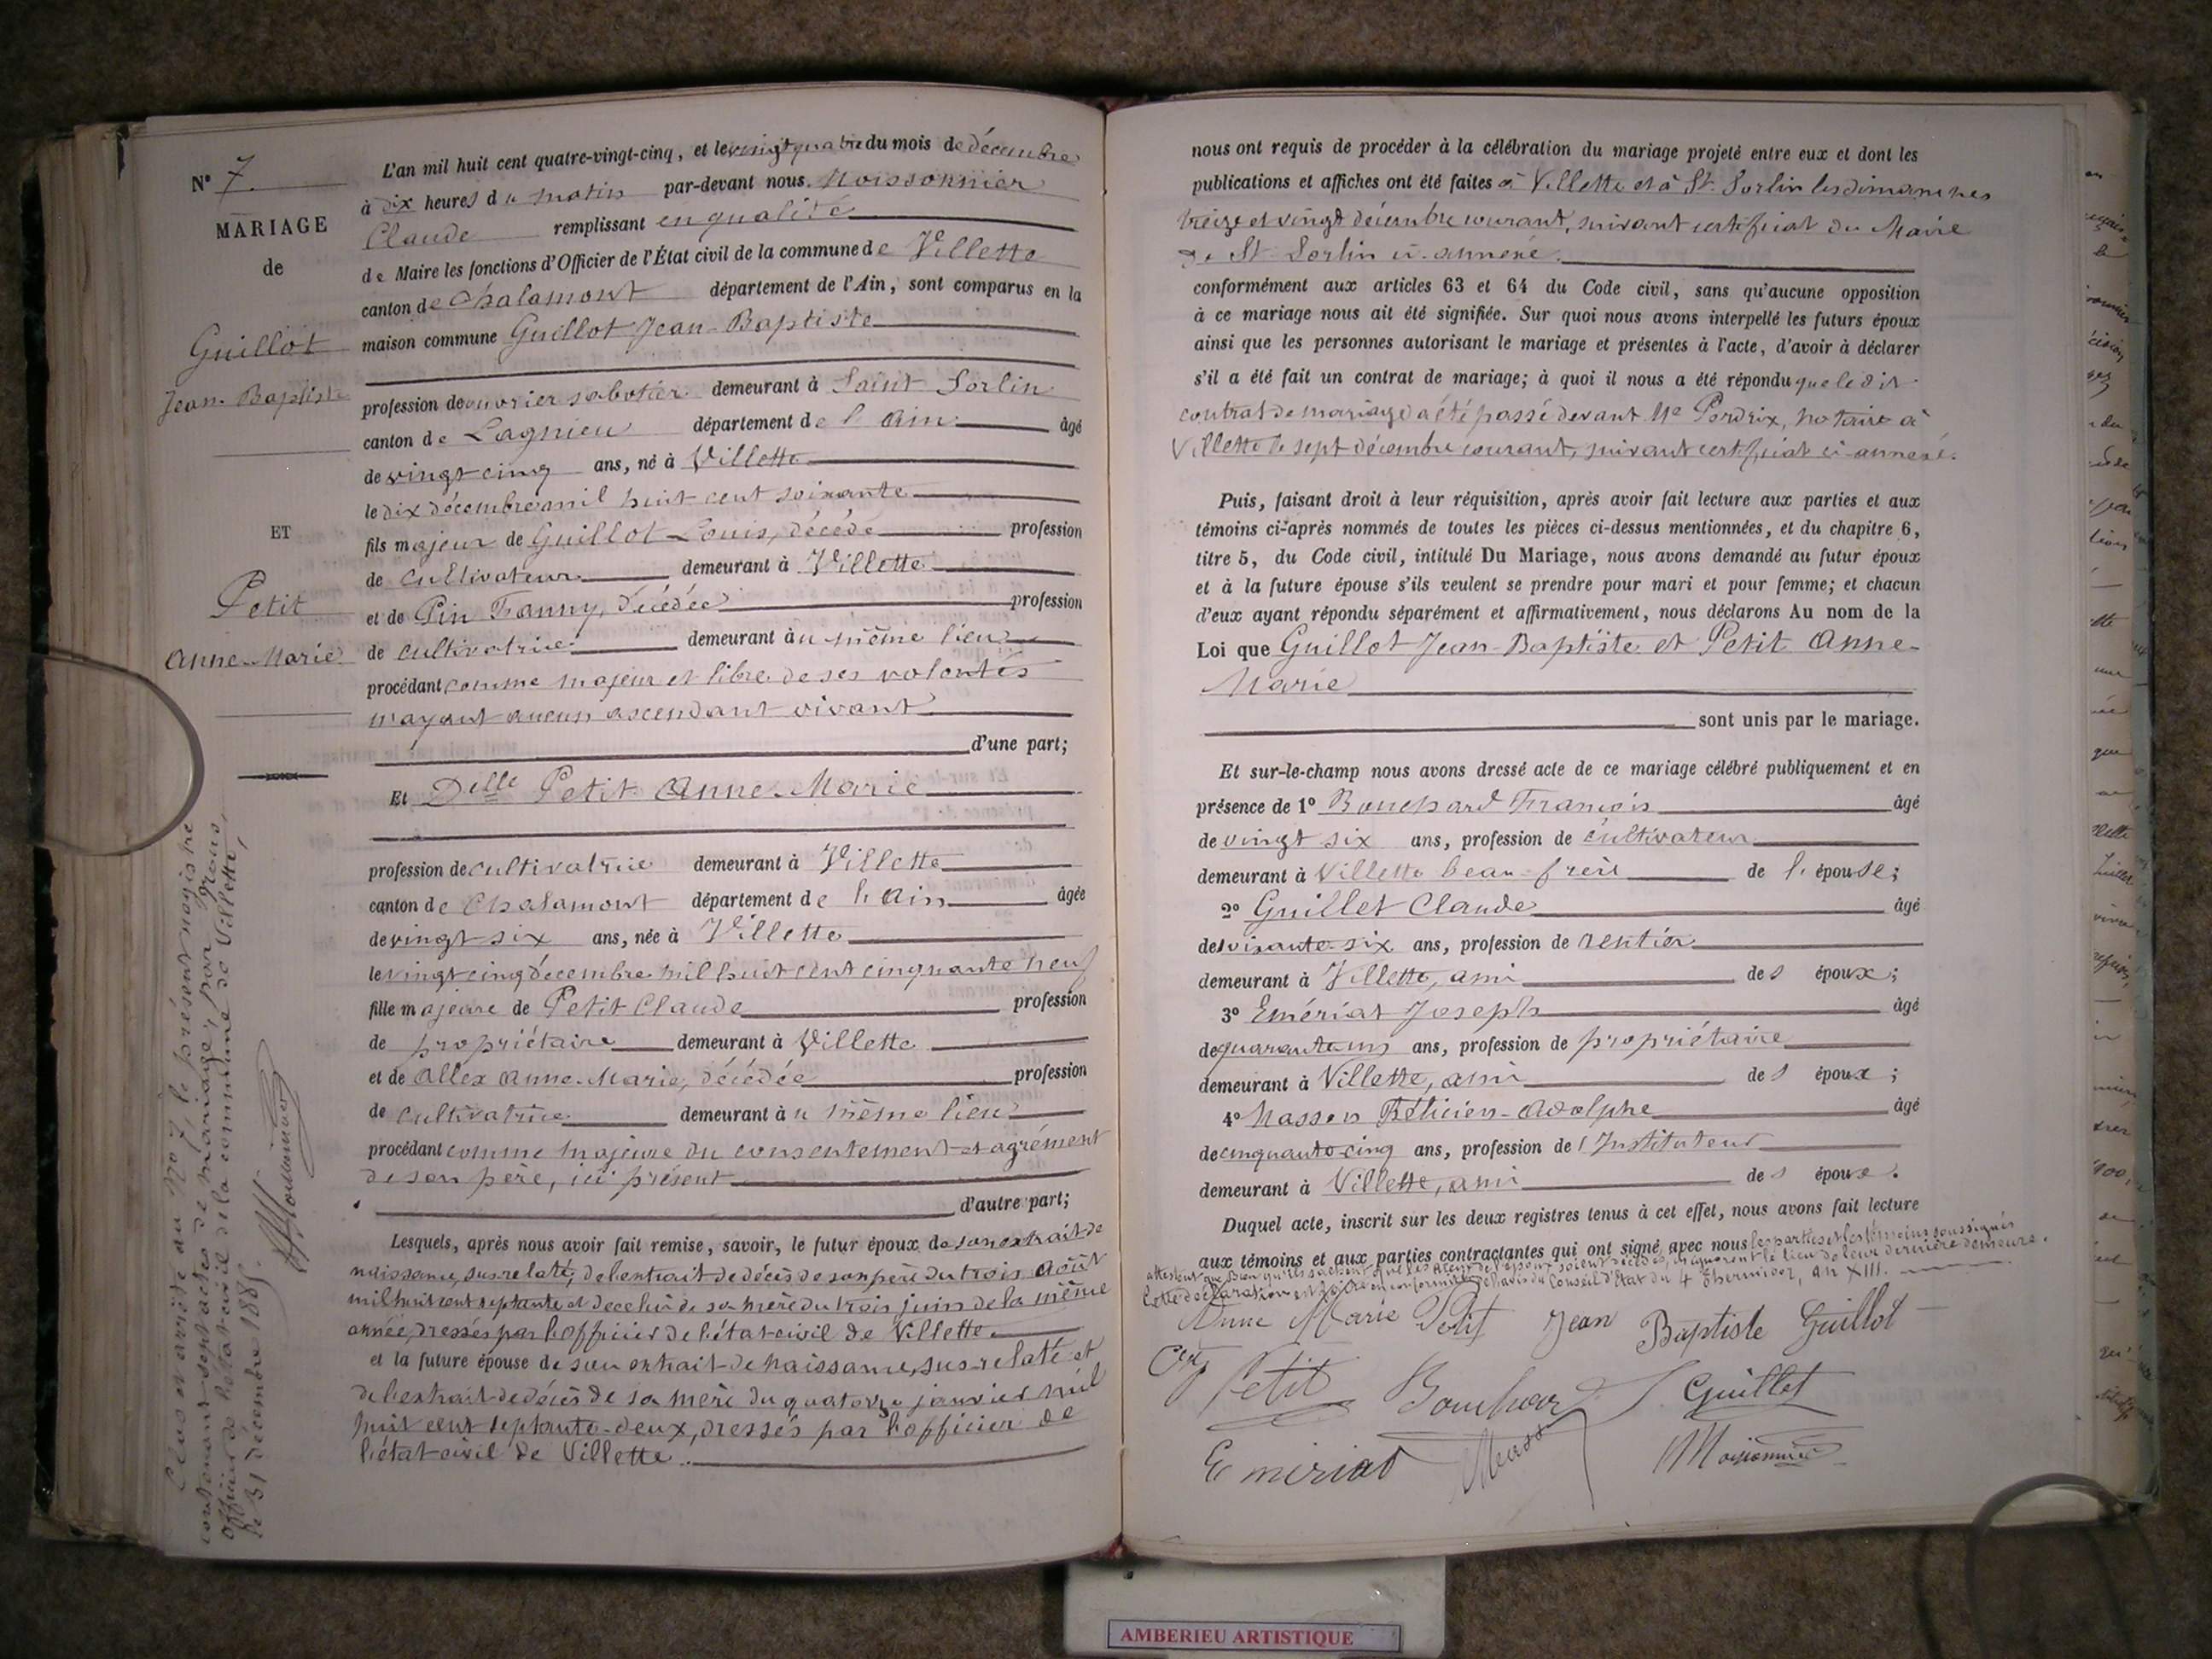 N° 7.
MARIAGE
de
Guillot
Jean-Baptiste
ET
Petit
Anne-Marie
L'an mil huit cent quatre-vingt-cinq, et le vingt quatre du mois de décembre
à dix heures du matin par-devant nous Moissonnier
Claude remplissant en qualité
de Maire les fonctions d'Officier de l'État civil de la commune de Villette
canton de Chalamont département de l'Ain, sont comparus en la
maison commune Guillot Jean-Baptiste
profession de ouvrier sabotier demeurant à Saint Sorlin
canton de Lagnieu département de l'Ain âgé
de vingt cinq ans, né à Villette
le dix décembre mil huit cent soixante
fils majeur de Guillot Louis, décédé profession
de cultivateur demeurant à Villette
et de Pin Fanny, décédée profession
de cultivatrice demeurant au même lieu
procédant comme majeur et libre de ses volontés
n'ayant aucun ascendant vivant
d'une part;
Et Delle Petit Anne-Marie
profession de cultivatrice demeurant à Villette
canton de Chalamont département de l'Ain âgée
de vingt six ans, née à Villette
le vingt cinq décembre mil huit cent cinquante neuf
fille majeure de Petit Claude profession
de propriétaire demeurant à Villette
et de Allex Anne-Marie, décédée profession
de cultivatrice demeurant au même lieu
procédant comme majeure du consentement et agrément
de son père, ici présent
d'autre part;
Lesquels, après nous avoir fait remise, savoir, le futur époux de son extrait de
naissance, sus relaté, de l'extrait de décès de son père du trois août
mil huit cent septante et de celui de sa mère du trois juin de la même
année, dressés par l'officier de l'état civil de Villette.
et la future épouse de son extrait de naissance, sus-relaté et
de l'extrait de décès de sa mère du quatorze janvier mil
huit cent septante-deux, dressés par l'officier de
l'état civil de Villette.
Clos et arrêté au N° 7, le présent registre
contenant sept actes de mariage, par nous,
officier de l'état civil de la commune de Villette,
le 31 décembre 1885.
Moissonnier
nous ont requis de procéder à la célébration du mariage projeté entre eux et dont les
publications et affiches ont été faites à Villette et à St Sorlin les dimanches
treize et vingt décembre courant, suivant certificat du Maire
de St Sorlin ci-annexé.
conformément aux articles 63 et 64 du Code civil, sans qu'aucune opposition
à ce mariage nous ait été signifiée. Sur quoi nous avons interpellé les futurs époux
ainsi que les personnes autorisant le mariage et présentes à l'acte, d'avoir à déclarer
s'il a été fait un contrat de mariage; à quoi il nous a été répondu que le dit
contrat de mariage a été passé devant Me Perdrix, notaire à
Villette le sept décembre courant, suivant certificat ci-annexé.
Puis, faisant droit à leur réquisition, après avoir fait lecture aux parties et aux
témoins ci-après nommés de toutes les pièces ci-dessus mentionnées, et du chapitre 6,
titre 5, du Code civil, intitulé Du Mariage, nous avons demandé au futur époux
et à la future épouse s'ils veulent se prendre pour mari et pour femme; et chacun
d'eux ayant répondu séparément et affirmativement, nous déclarons Au nom de la
Loi que Guillot Jean-Baptiste et Petit Anne-
Marie
sont unis par le mariage.
Et sur-le-champ nous avons dressé acte de ce mariage célébré publiquement et en
présence de 1° Bouchard François âgé
de vingt six ans, profession de cultivateur
demeurant à Villette beau-frère de l'épouse;
2° Guillet Claude âgé
de soixante-six ans, profession de rentier
demeurant à Villette, ami des époux;
3° Emériat Joseph âgé
de quarante un ans, profession de propriétaire
demeurant à Villette, ami des époux;
4° Masson Félicien-Adolphe âgé
de cinquante cinq ans, profession d'Instituteur
demeurant à Villette, ami des époux.
Duquel acte, inscrit sur les deux registres tenus à cet effet, nous avons fait lecture
aux témoins et aux parties contractantes qui ont signé avec nous les parties et les témoins soussignés
attestent que bien qu'ils sachent que les aïeux de l'époux soient décédés, ils ignorent le lieu de leur dernière demeure.
Cette déclaration est faite en conformité de l'avis du Conseil d'État du 4 thermidor, an XIII.
Anne Marie Petit Jean Baptiste Guillot
Petit Bouchard Guillet
Emeriat Masson Moissonnier
AMBERIEU ARTISTIQUE